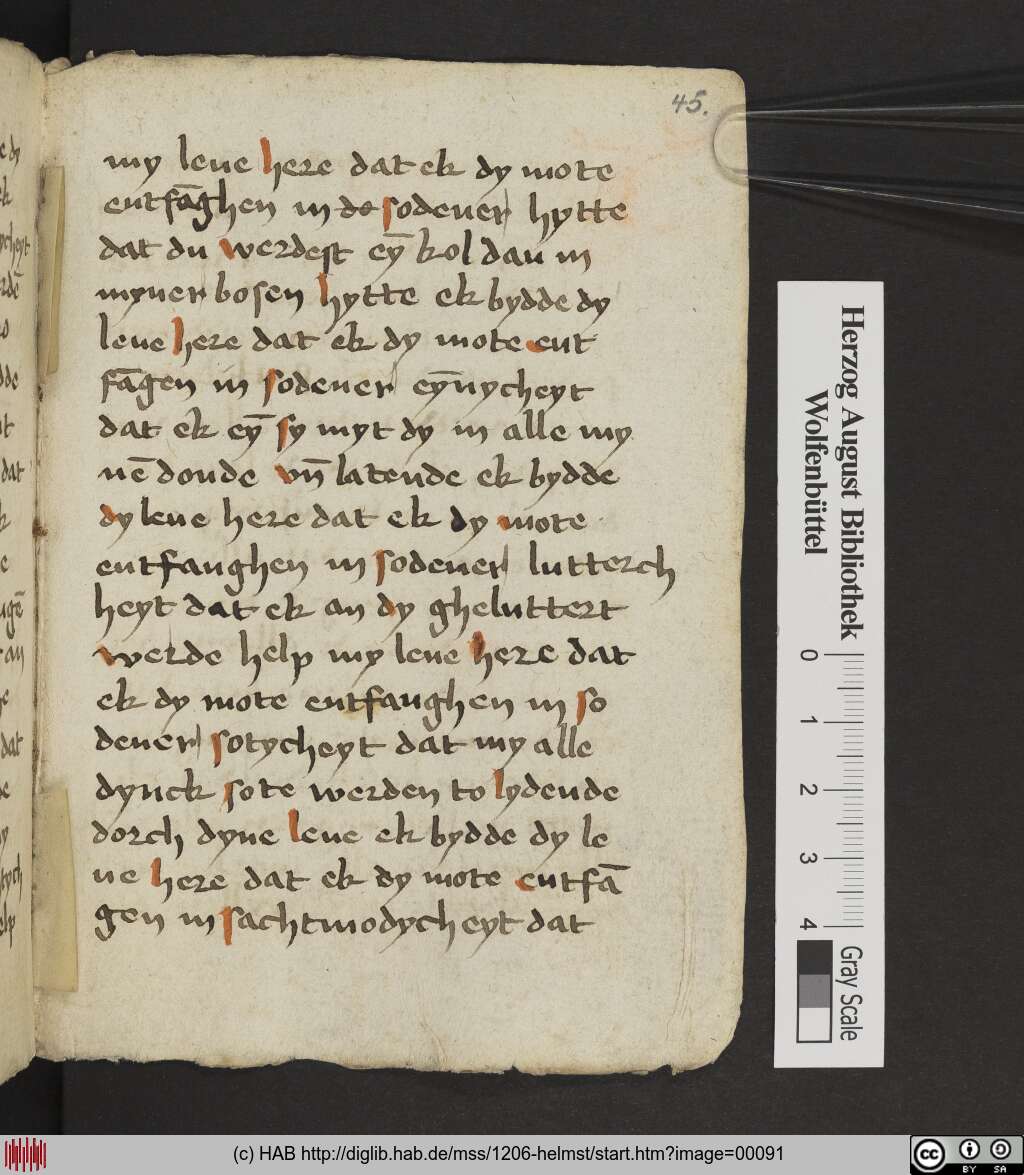 45.
my leue here dat ek dy mote
entfāghen in de sodener hytte
dat du werdest eȳ kol dau in
myner bosen hytte ek bydde dy
leue here dat ek dy mote ent
fāgen in sodener eȳnycheyt
dat ek eȳ sy myt dy in alle my
nē donde vn̄ latende ek bydde
dy leue here dat ek dy mote
entfanghen in sodener lutterch
heyt dat ek an dy gheluttert
werde help my leue here dat
ek dy mote entfanghen in so
dener sotycheyt dat my alle
dynck sote werden to lydende
dorch dyne leue ek bydde dy le
ue here dat ek dy mote entfā
gen in sachtmodycheyt dat
Herzog August Bibliothek
Wolfenbüttel
0 1 2 3 4
Gray Scale
(c) HAB http://diglib.hab.de/mss/1206-helmst/start.htm?image=00091
cc BY SA